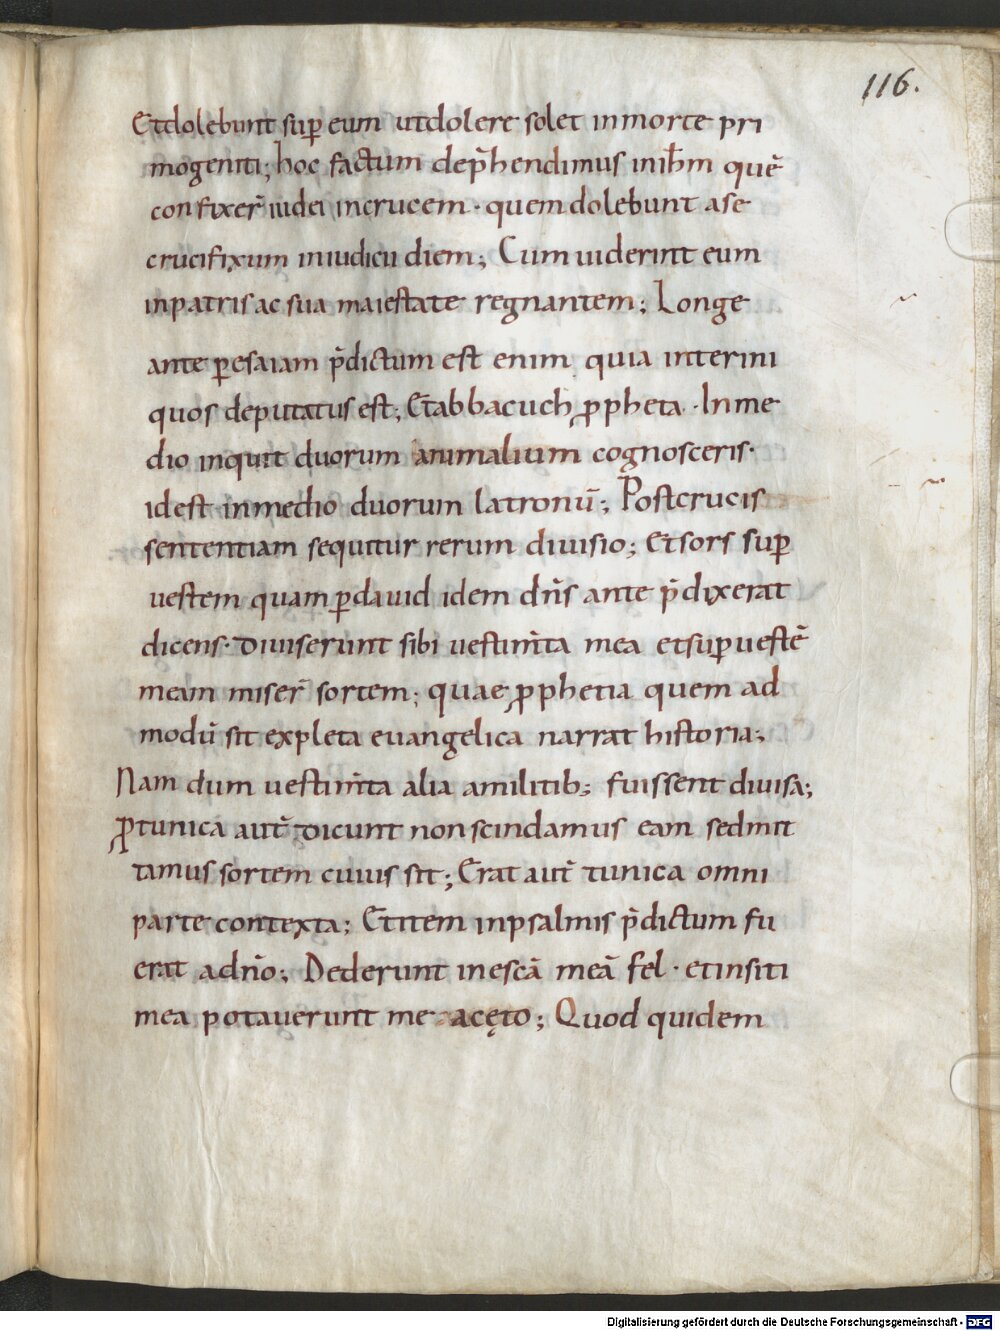 116.
Et dolebunt sup̄ eum ut dolere solet in morte pri
mogeniti; hoc factum dep̄hendimus in ih̄m quē
confixer̄ iudei in crucem · quem dolebunt a se
crucifixum in iudicii diem; Cum uiderint eum
in patris ac sua maiestate regnantem; Longe
ante ꝑ esaiam p̄dictum est enim quia inter ini
quos deputatus est; Et abbacuch ꝓpheta · In me
dio inquit duorum animalium cognosceris·
id est in medio duorum latronū; Post crucis
sententiam sequitur rerum diuisio; Et sors sup̄
uestem quam ꝑ dauid idem dn̄s ante p̄dixerat
dicens· Diuiserunt sibi uestim̄ta mea et sup̄ uestē
meam miser̄ sortem; quae ꝓphetia quem ad
modū sit expleta euangelica narrat historia;
Nam dum uestim̄ta alia a militib; fuissent diuisa;
ꝓ tunica aut̄ dicunt non scindamus eam sed mit
tamus sortem cuius sit; Erat aut̄ tunica omni
parte contexta; Et item in psalmis p̄dictum fu
erat a dn̄o; Dederunt in escā meā fel · et in siti
mea potauerunt me acęto; Quod quidem
Digitalisierung gefördert durch die Deutsche Forschungsgemeinschaft - DFG